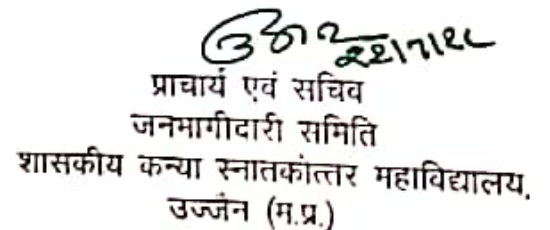 २२/7/२८
प्राचार्य एवं सचिव
जनभागीदारी समिति
शासकीय कन्या स्नातकोत्तर महाविद्यालय,
उज्जैन (म.प्र.)